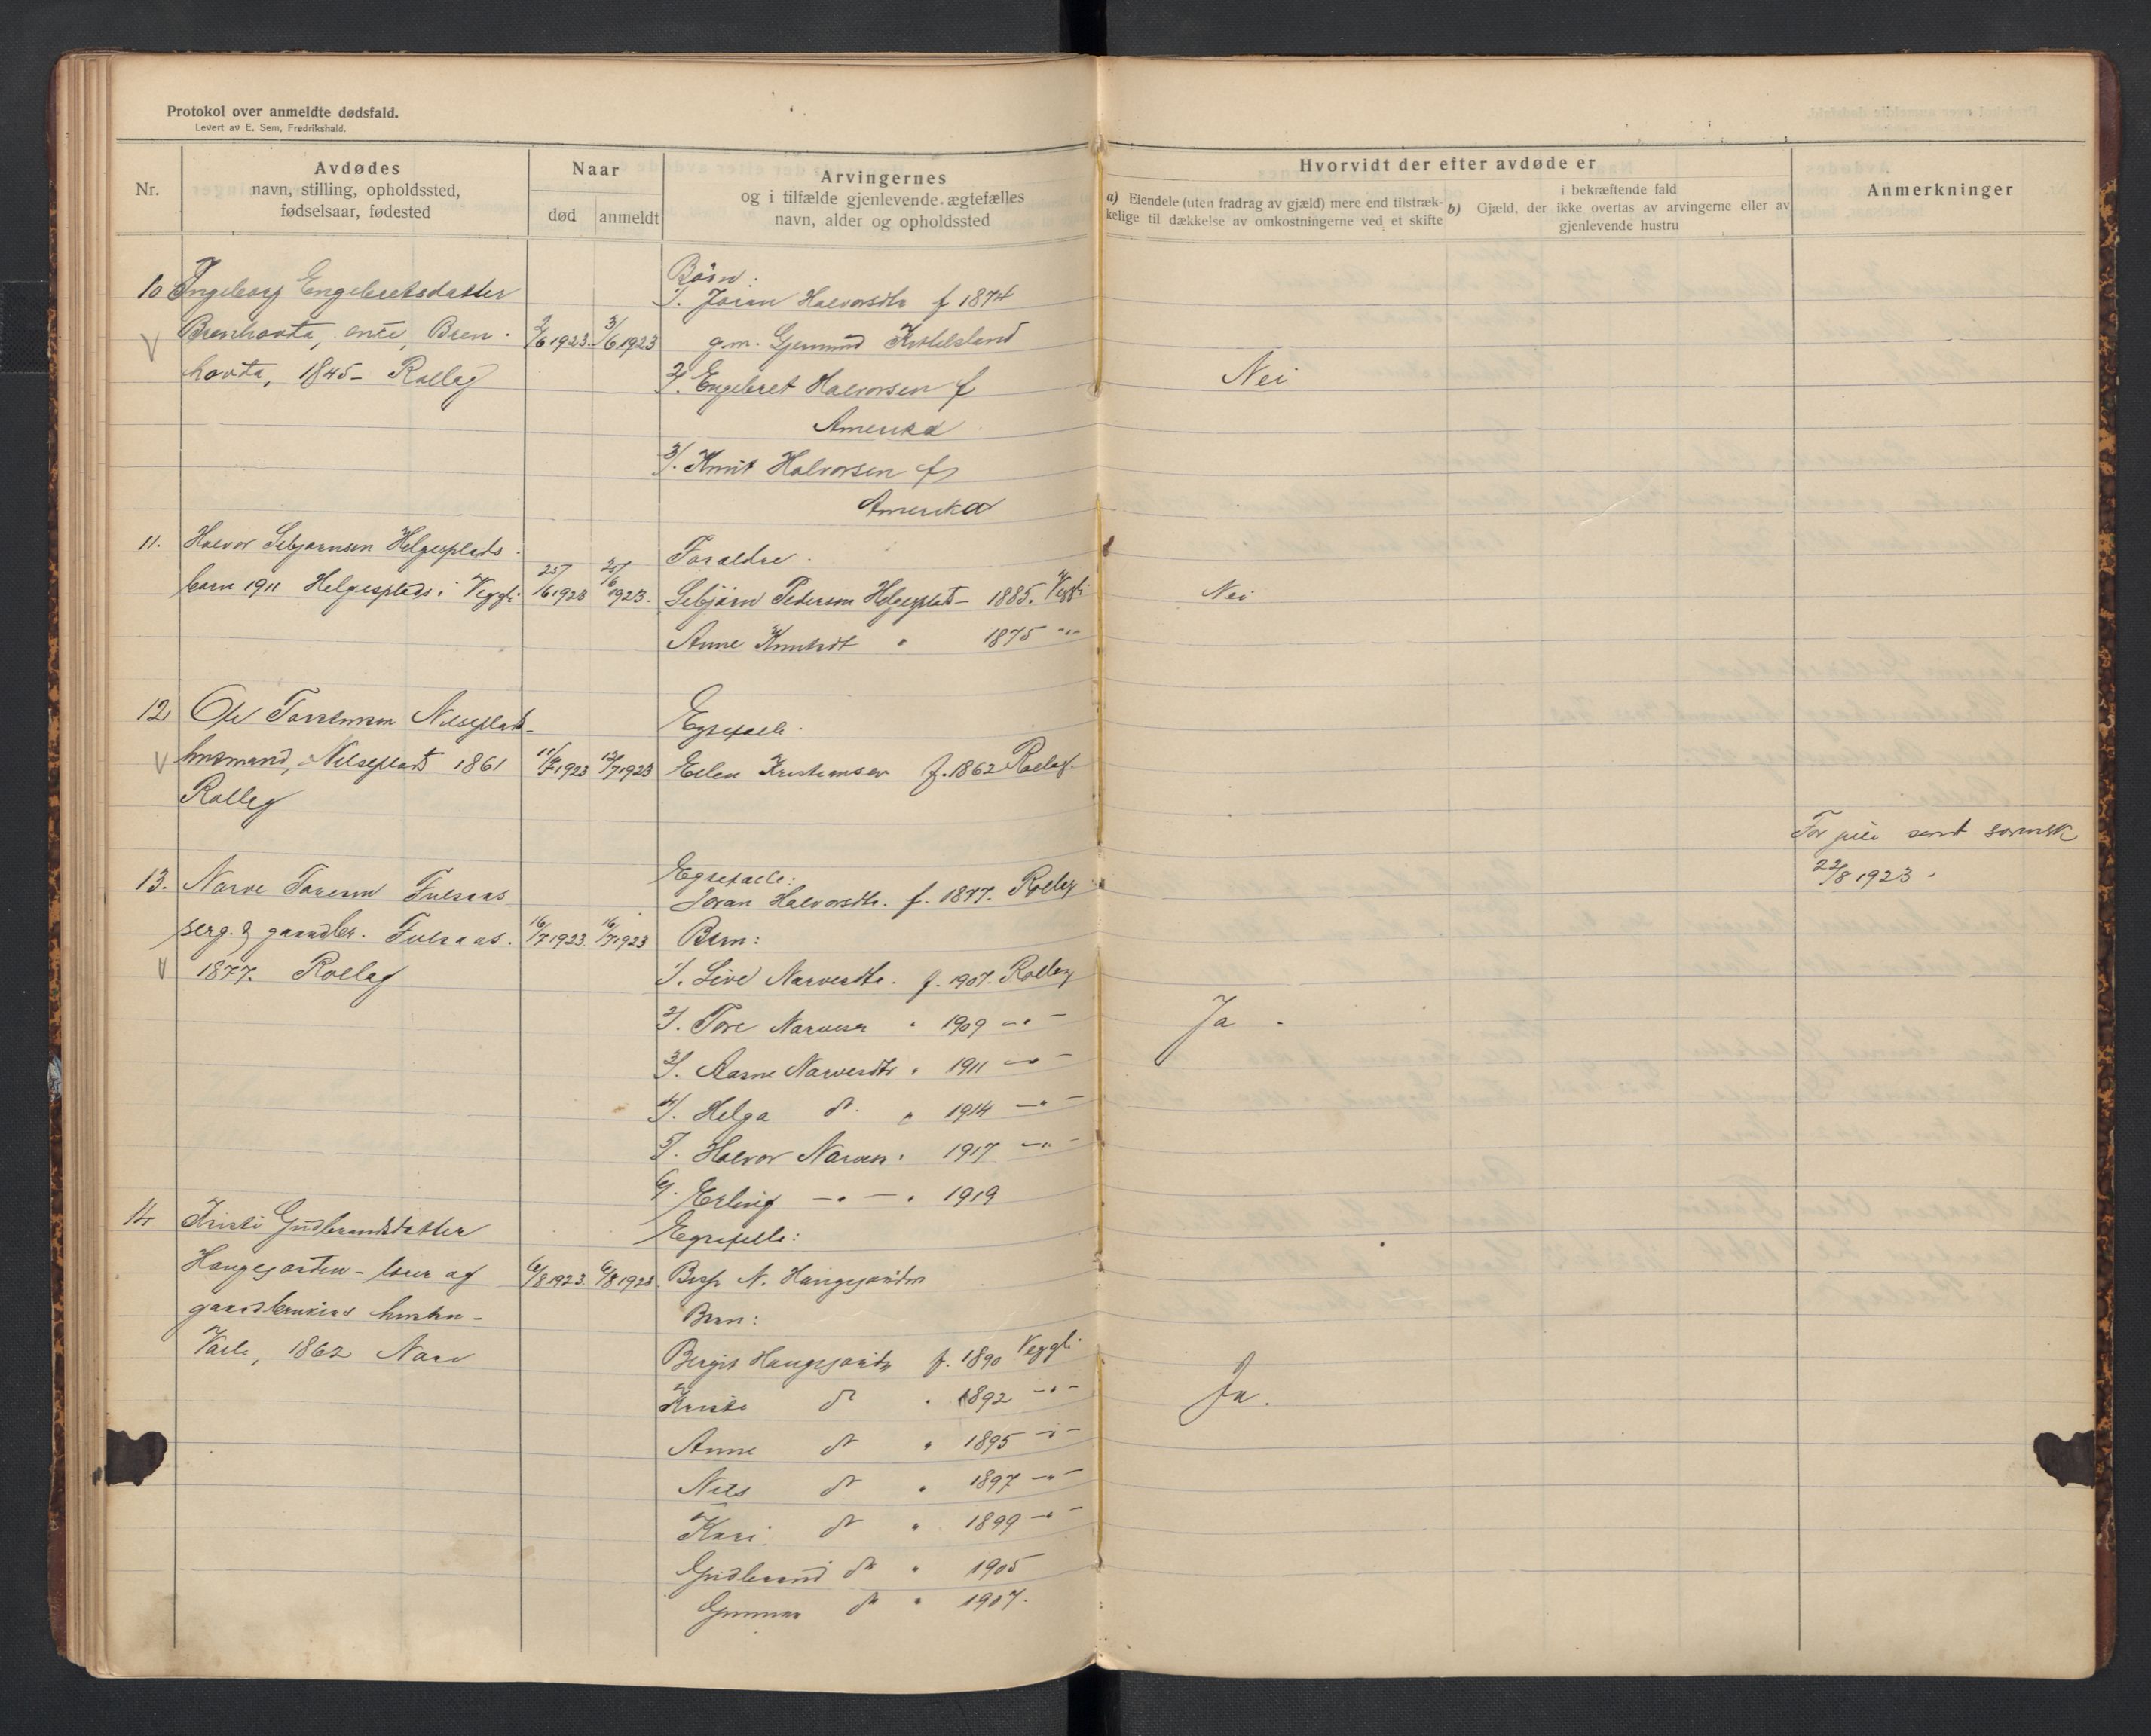 Protokol over anmeldte dødsfald.
Levert av E. Sem, Fredrikshald.
Nr.
Avdødes
navn, stilling, opholdssted,
fødselsaar, fødested
Naar
død
anmeldt
Arvingernes
og i tilfælde gjenlevende ægtefælles
navn, alder og opholdssted
Hvorvidt der efter avdøde er
a) Eiendele (uten fradrag av gjæld) mere end tilstræk-
kelige til dækkelse av omkostningerne ved et skifte
b) Gjæld, der
i bekræftende fald
ikke overtas av arvingerne eller av
gjenlevende hustru
Anmerkninger
10 Ingeborg Engebretsdatter
Brenhovta, enke, Bren-
hovta, 1845 - Rollag
2/6 1923. 3/6 1923
Børn:
1/. Joran Halvorsdtr f 1874
g.m. Gjermund Kittelsland
2/. Engebret Halvorsen f
Amerika
3/. Knut Halvorsen f
Amerika
Nei
11. Halvor Sebjørnsen Helgesplads
barn 1911 Helgesplads i Veggli
25/6 1923 25/6 1923.
Foraldre.
Sebjørn Pedersen Helgesplads - 1885. Veggli
Anne Knutsdt " 1875 -"-
Nei
12 Ole Torstensen Nilseplads
husmand, Nilseplads 1861
Rollag
11/7 1923 12/7 1923
Egtefælle.
Ellen Kristensen f. 1862 Rollag.
13. Narve Toresen Fulsaas
serg. & gaardbr. Fulsaas.
1877. Rollag
16/7 1923. 16/7 1923
Egtefælle:
Joran Halvorsdtr. f. 1877. Rollag
Børn:
1/. Live Narvesdtr. f. 1907. Rollag
2/. Tore Narvesen " 1909 -"-
3/. Aasne Narvesdtr " 1911 -"-
4/. Helga do. " 1914 -"-
5/. Halvor Narvesen " 1917 -"-
6/. Erling -"- " 1919
Ja.
22/8 1923.
14 Kristi Gudbrandsdatter
Haugejorden - lærer og
gaardbrukers hustru -
1862 Nore
6/8 1923. 6/8 1923.
Egtefelle:
N. Haugejorden
Børn:
Birgit Haugejorden f. 1890 Veggli
Kristi do " 1892 -"-
Anne do " 1895 -"-
Nils do " 1897 -"-
Kari do " 1899 -"-
Gudbrand do " 1905
Gunnar do " 1907.
Ja.